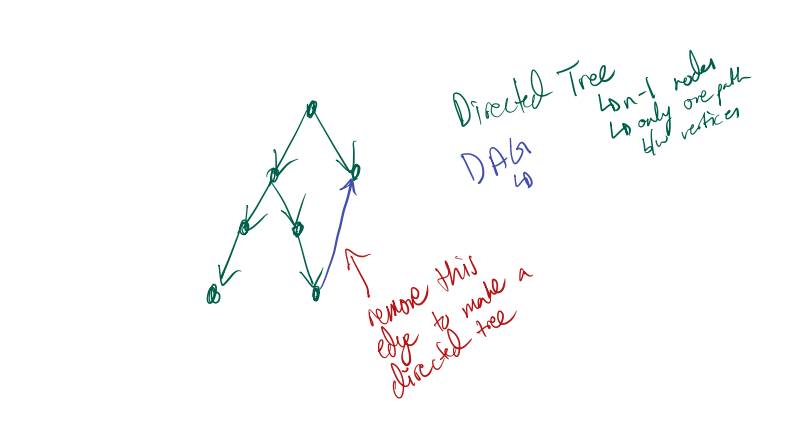 Directed Tree
↳ n-1 nodes
↳ only one path
b/w vertices
DAG
↳
remove this
edge to make a
directed tree